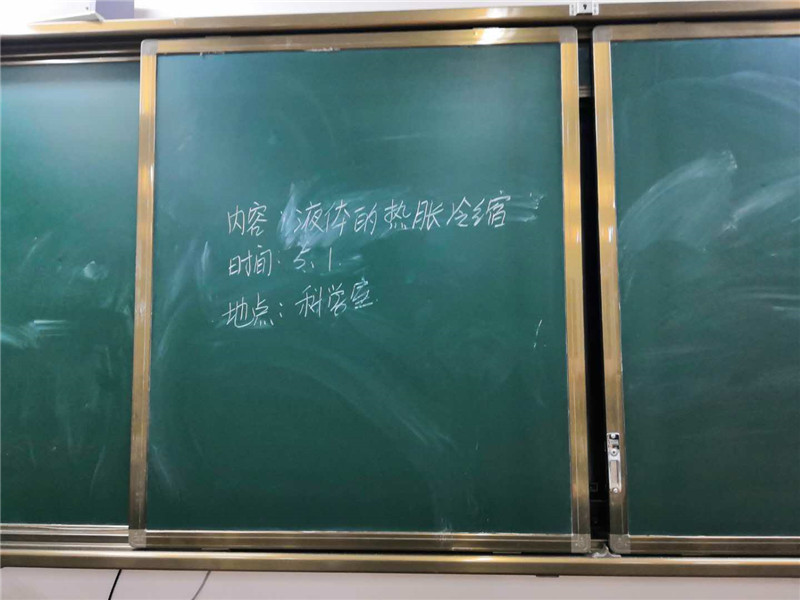 内容：液体的热胀冷缩
时间：5.1.
地点：科学室